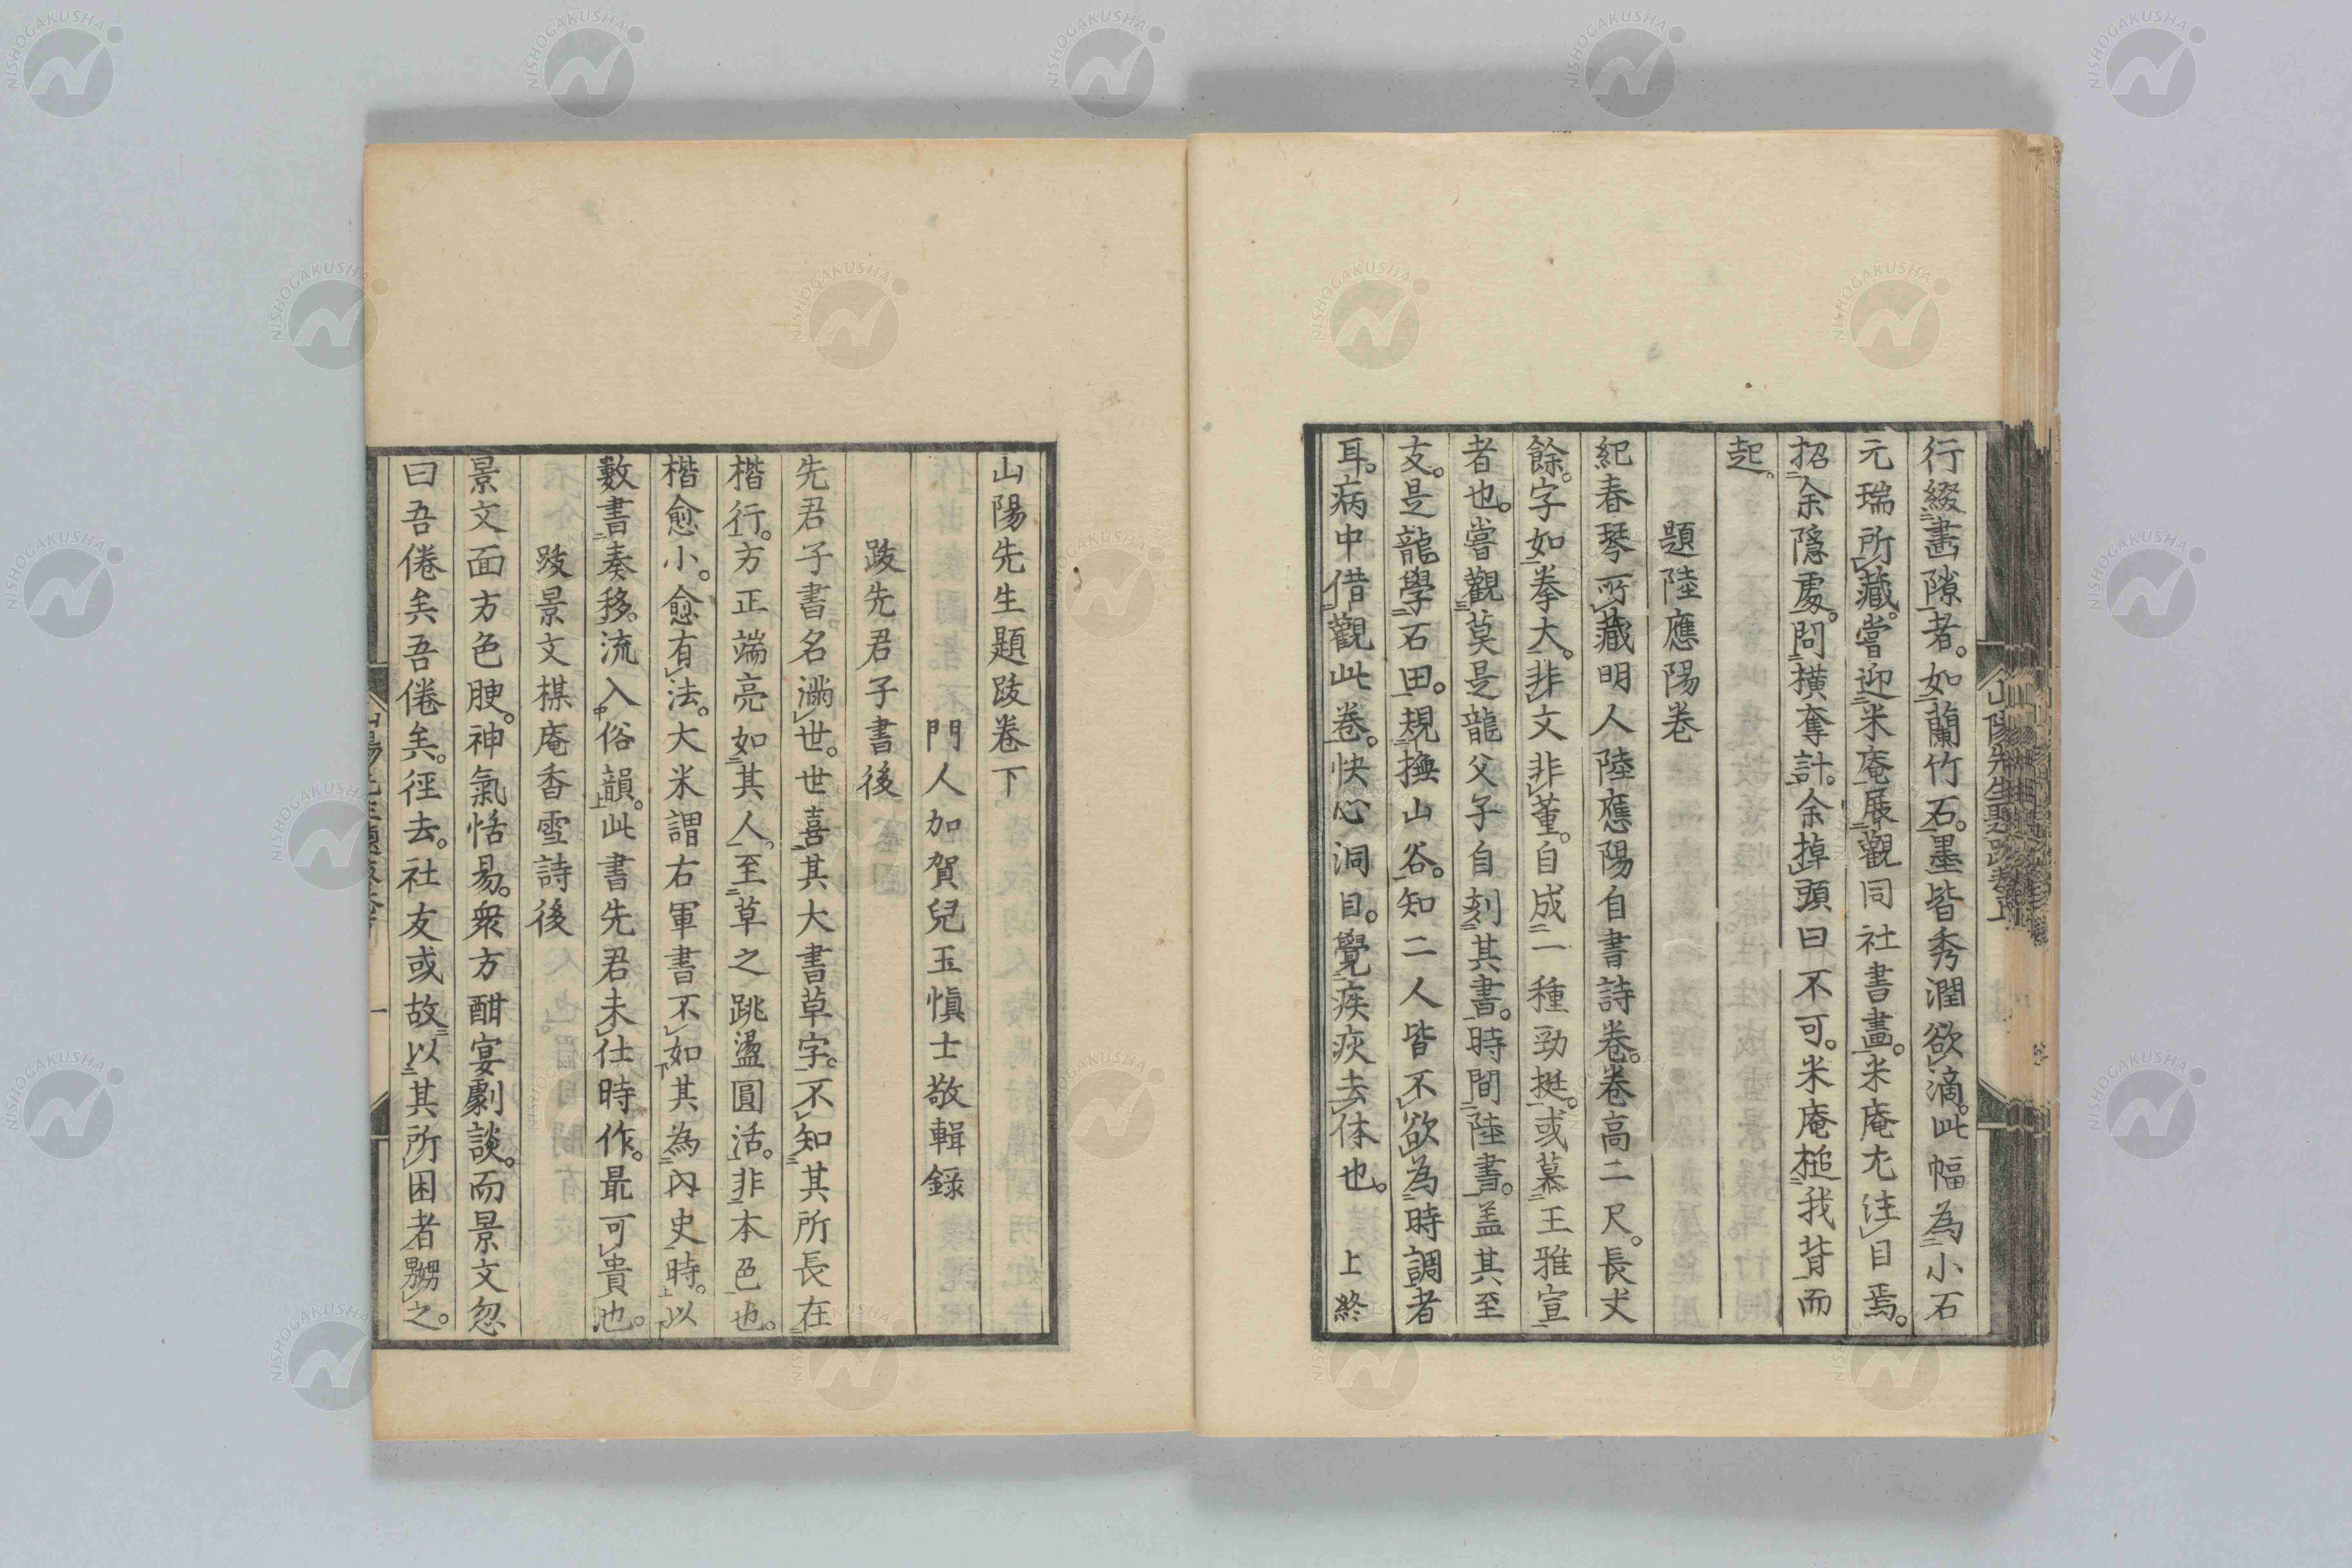 行綴畵隙者。如蘭竹石。墨皆秀潤欲滴。此幅為小石
元瑞所藏。嘗迎米庵展觀同社書畵。米庵尤注目焉。
招余隱處。問橫奪計。余掉頭曰不可。米庵槌我背而
起。
題陸應陽卷
紀春琴所藏明人陸應陽自書詩卷。卷高二尺。長丈
餘。字如拳大。非文非董。自成一種勁挺。或慕王雅宣
者也。嘗觀莫是龍父子自刻其書。時間陸書。盖其至
友。是龍學石田。規撫山谷。知二人皆不欲為時調者
耳。病中借觀此卷。快心洞目。覺疾疢去体也。 上終
山陽先生題跋卷下
門人加賀兒玉愼士敬輯錄
跋先君子書後
先君子書名滿世。世喜其大書草字。不知其所長在
楷行。方正端亮如其人。至草之跳盪圓活。非本色也。
楷愈小。愈有法。大米謂右軍書不如其為內史時。以
數書奏移。流入俗韻。此書先君未仕時作。最可貴也。
跋景文棋庵香雪詩後
景文面方色腴。神氣恬易。衆方酣宴劇談。而景文忽
曰吾倦矣吾倦矣。徑去。社友或故以其所困者嬲之。
山陽先生題跋卷上
一
NISHOGAKUSHA